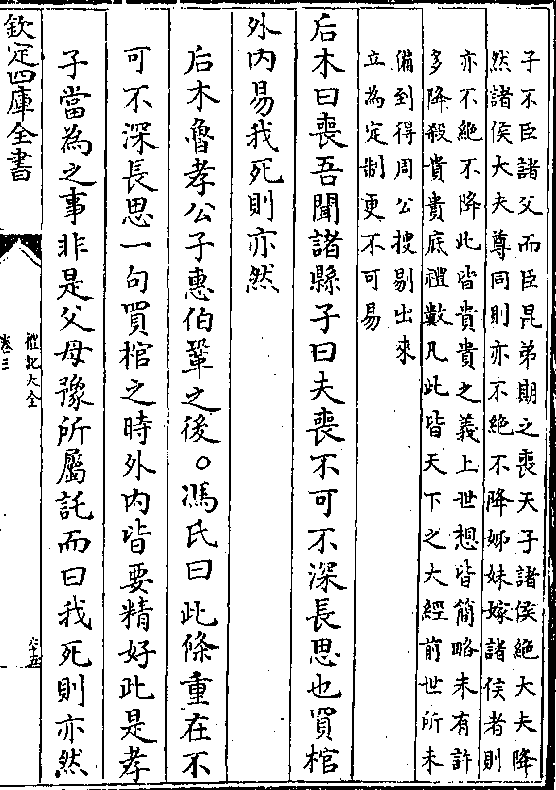 子不臣諸父而臣昆弟期之喪天子諸侯絶大夫降
然諸侯大夫尊同則亦不絶不降姊妹嫁諸侯者則
亦不絶不降此皆貴貴之義上世想皆簡略未有許
多降殺貴貴底禮數凡此皆天下之大經前世所未
備到得周公搜剔出來
立為定制更不可易
后木曰喪吾聞諸縣子曰夫喪不可不深長思也買棺
外内易我死則亦然
后木魯孝公子惠伯鞏之後○馮氏曰此條重在不
可不深長思一句買棺之時外内皆要精好此是孝
子當為之事非是父母豫所屬託而曰我死則亦然
欽定四庫全書
禮記大全
卷三
六十五